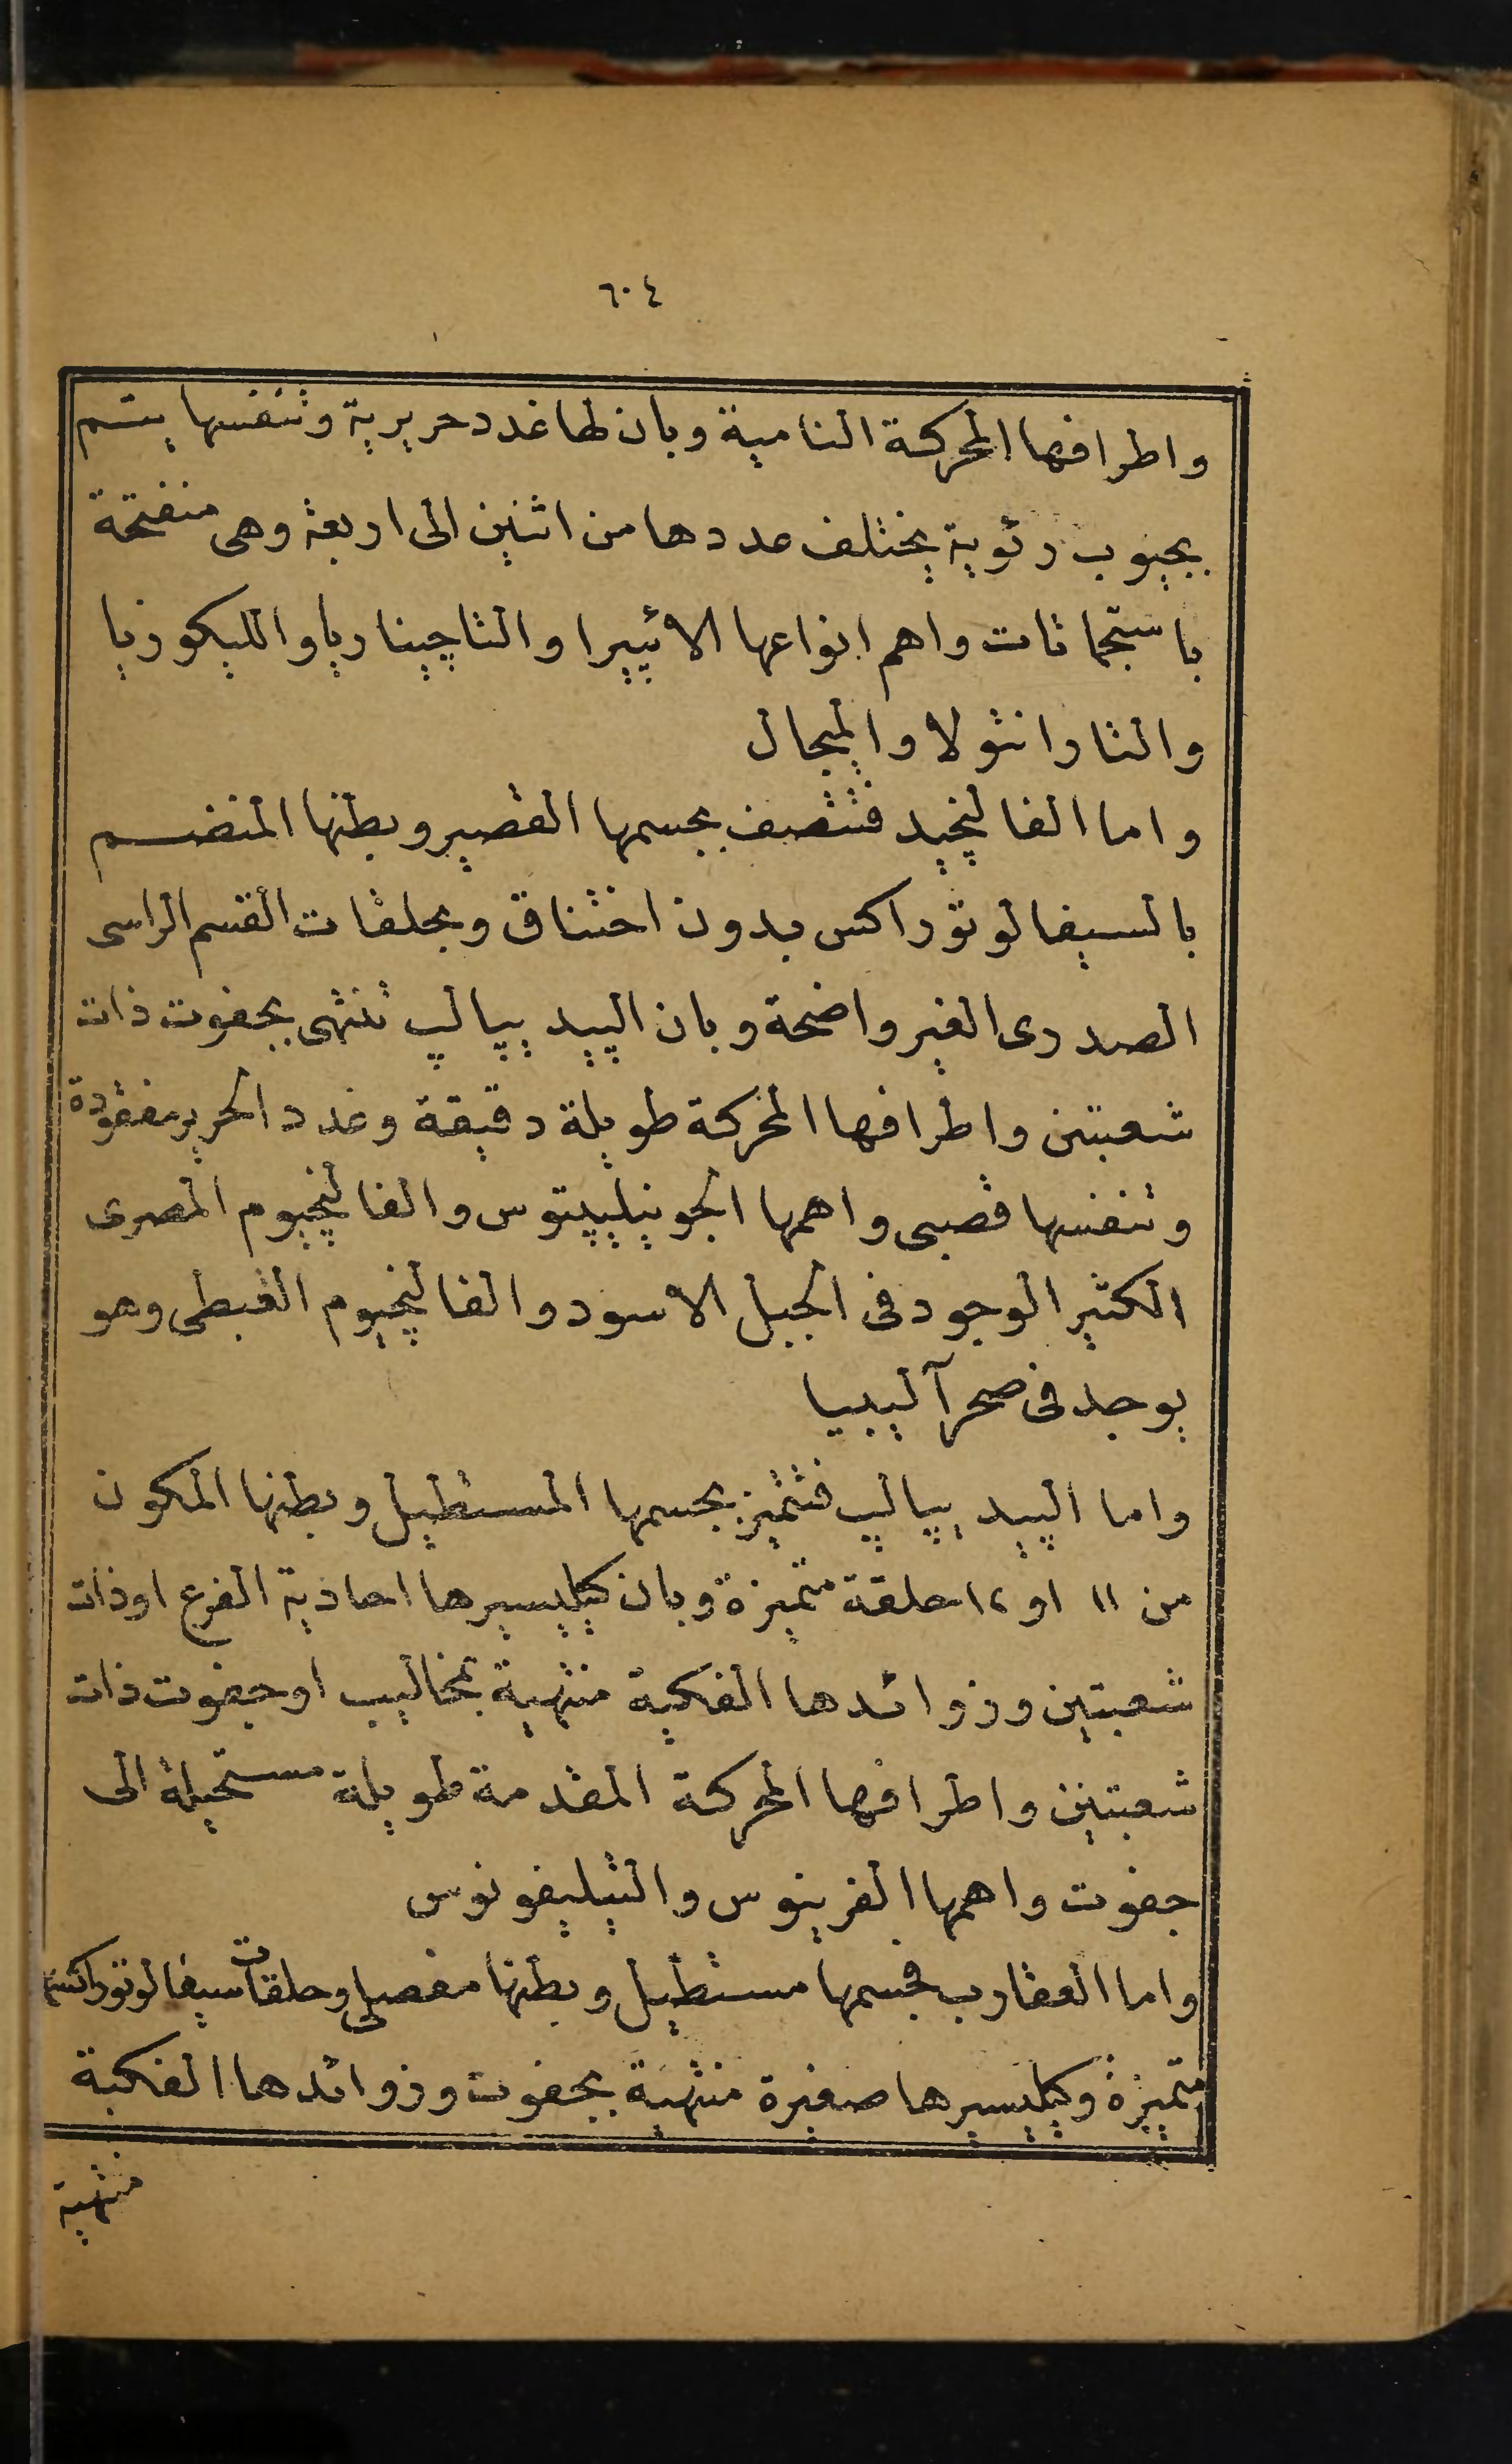 ٦٠٤
واطرافها المحركة النامية وبان لها غدد حريرية وتنفسها يتم
بجيوب رئوية يختلف عددها من اثنين الى اربعة وهى منفتحة
باستجماتات واهم انواعها الائپيرا والتاچيناريا والليكوزيا
والتارانتولا والميجال
واما الفالنچيد فتتصف بجسمها القصير وبطنها المنضم
بالسيفالوتوراكس بدون اختناق وبحلقات القسم الراسى
الصدرى الغير واضحة وبان الپيد پيپالپ تنتهى بجفوت ذات
شعبتين واطرافها المحركة طويلة دقيقة وغدد الحرير مفقودة
وتنفسها قصبى واهمها الجونيليپتوس والفالنچيوم المصرى
الكثير الوجود فى الجبل الاسود والفالنچيوم القبطى وهو
يوجد فى صحرآ ليبيا
واما الپيد پيپالپ فتتميز بجسمها المستطيل وبطنها المكون
من ١١ او ١٢ حلقة متميزة وبان كيليسيرها احادية الفرع او ذات
شعبتين وزوائدها الفكية منتهية بمخاليب او جفوت ذات
شعبتين واطرافها المحركة المقدمة طويلة مستحيلة الى
جفوت واهمها الفرينوس والتيليفونوس
واما العقارب فجسمها مستطيل وبطنها مفصلى وحلقات سيفالوتوراكسها
متميزة وكيليسيرها صغيرة منتهية بجفوت وزوائدها الفكية
منتهية